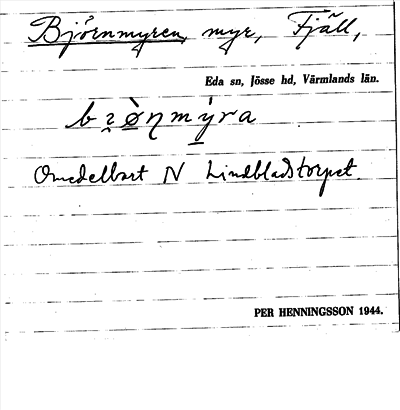 Björnmyren, myr, Fjäll,
Eda sn, Jösse hd, Värmlands län.
Omedelbart N Lindbladstorpet.
PER HENNINGSSON 1944.